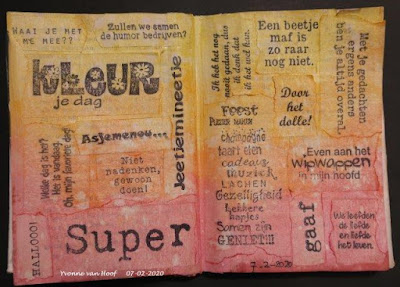 Waai je met
me mee??
Zullen we samen
de humor bedrijven?
KLEUR
je dag
Jeetjemineetje
Asjemenou...
Welke dag is het?
Het is vandaag.
Oh, mijn favoriete dag
Niet
nadenken,
gewoon
doen!
HALLOOO!
Super
Yvonne van Hoof 07-02-2020
Ik heb het nog
nooit gedaan, dus
ik denk dat
ik het wel kan.
Een beetje
maf is
zo raar
nog niet.
Met je gedachten
ergens anders
ben je altijd overal.
Door
het
dolle!
Feest
Plezier maken
champagne
taart eten
cadeaus
muziek
LACHEN
Gezelligheid
Lekkere
hapjes
Samen zijn
GENIET!!!
Even aan het
wipwappen
in mijn hoofd
gaaf
We leefden
de liefde
en liefde
het leven.
7.2-2020